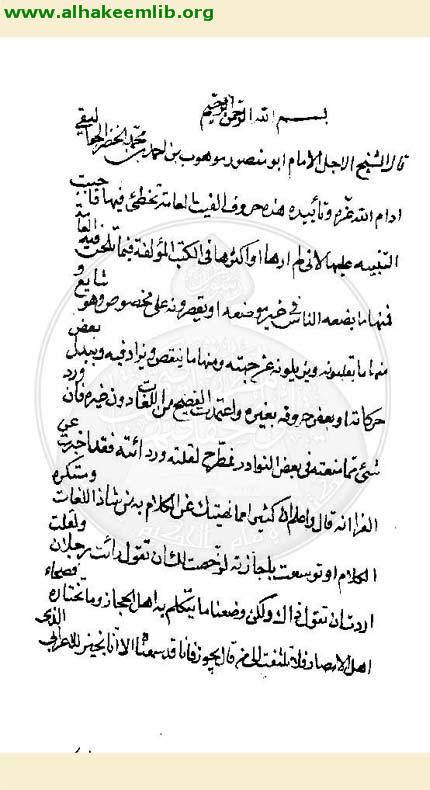 www.alhakeemlib.org
بسم الله الرحمن الرحيم
قال الشيخ الاجل الامام ابو منصور موهوب بن احمد بن محمد بن الخضر الجواليقي
ادام الله عزه وتأييده هذه حروف الفيت العامة تخطئ فيها فاحببت
التنبيه عليها لانى لم ارها او اكثرها في الكتب المؤلفة فيما تلحن فيه العامة
فمنها ما يضعه الناس في غير موضعه او يقصرونه على مخصوص وهو شايع
ومنها ما يقلبونه ويزيلونه عن جهته ومنها ما ينقص ويزاد فيه ويبدل بعض
حركاته او بعض حروفه بغيره واعتمدت الفصيح من اللغات دون غيره فان ورد
شئ مما منعته في بعض النوادر فمطرح لقلته وردائته فقد اخبرت عن
الفراء انه قال واعلم ان كثيرا مما نهيتك عن الكلام به من شاذ اللغات ومستكره
الكلام لو توسعت باجازته لرخصت لك ان تقول رائت رجلان ولقلت
اردت ان تقول ذاك ولكن وضعنا ما يتكلم به اهل الحجاز وما تختاره فصحاء
اهل الامصار فلا تلتفت الى من قال يجوز فانا قد سمعناه الا انا نجيز للاعرابي الذى